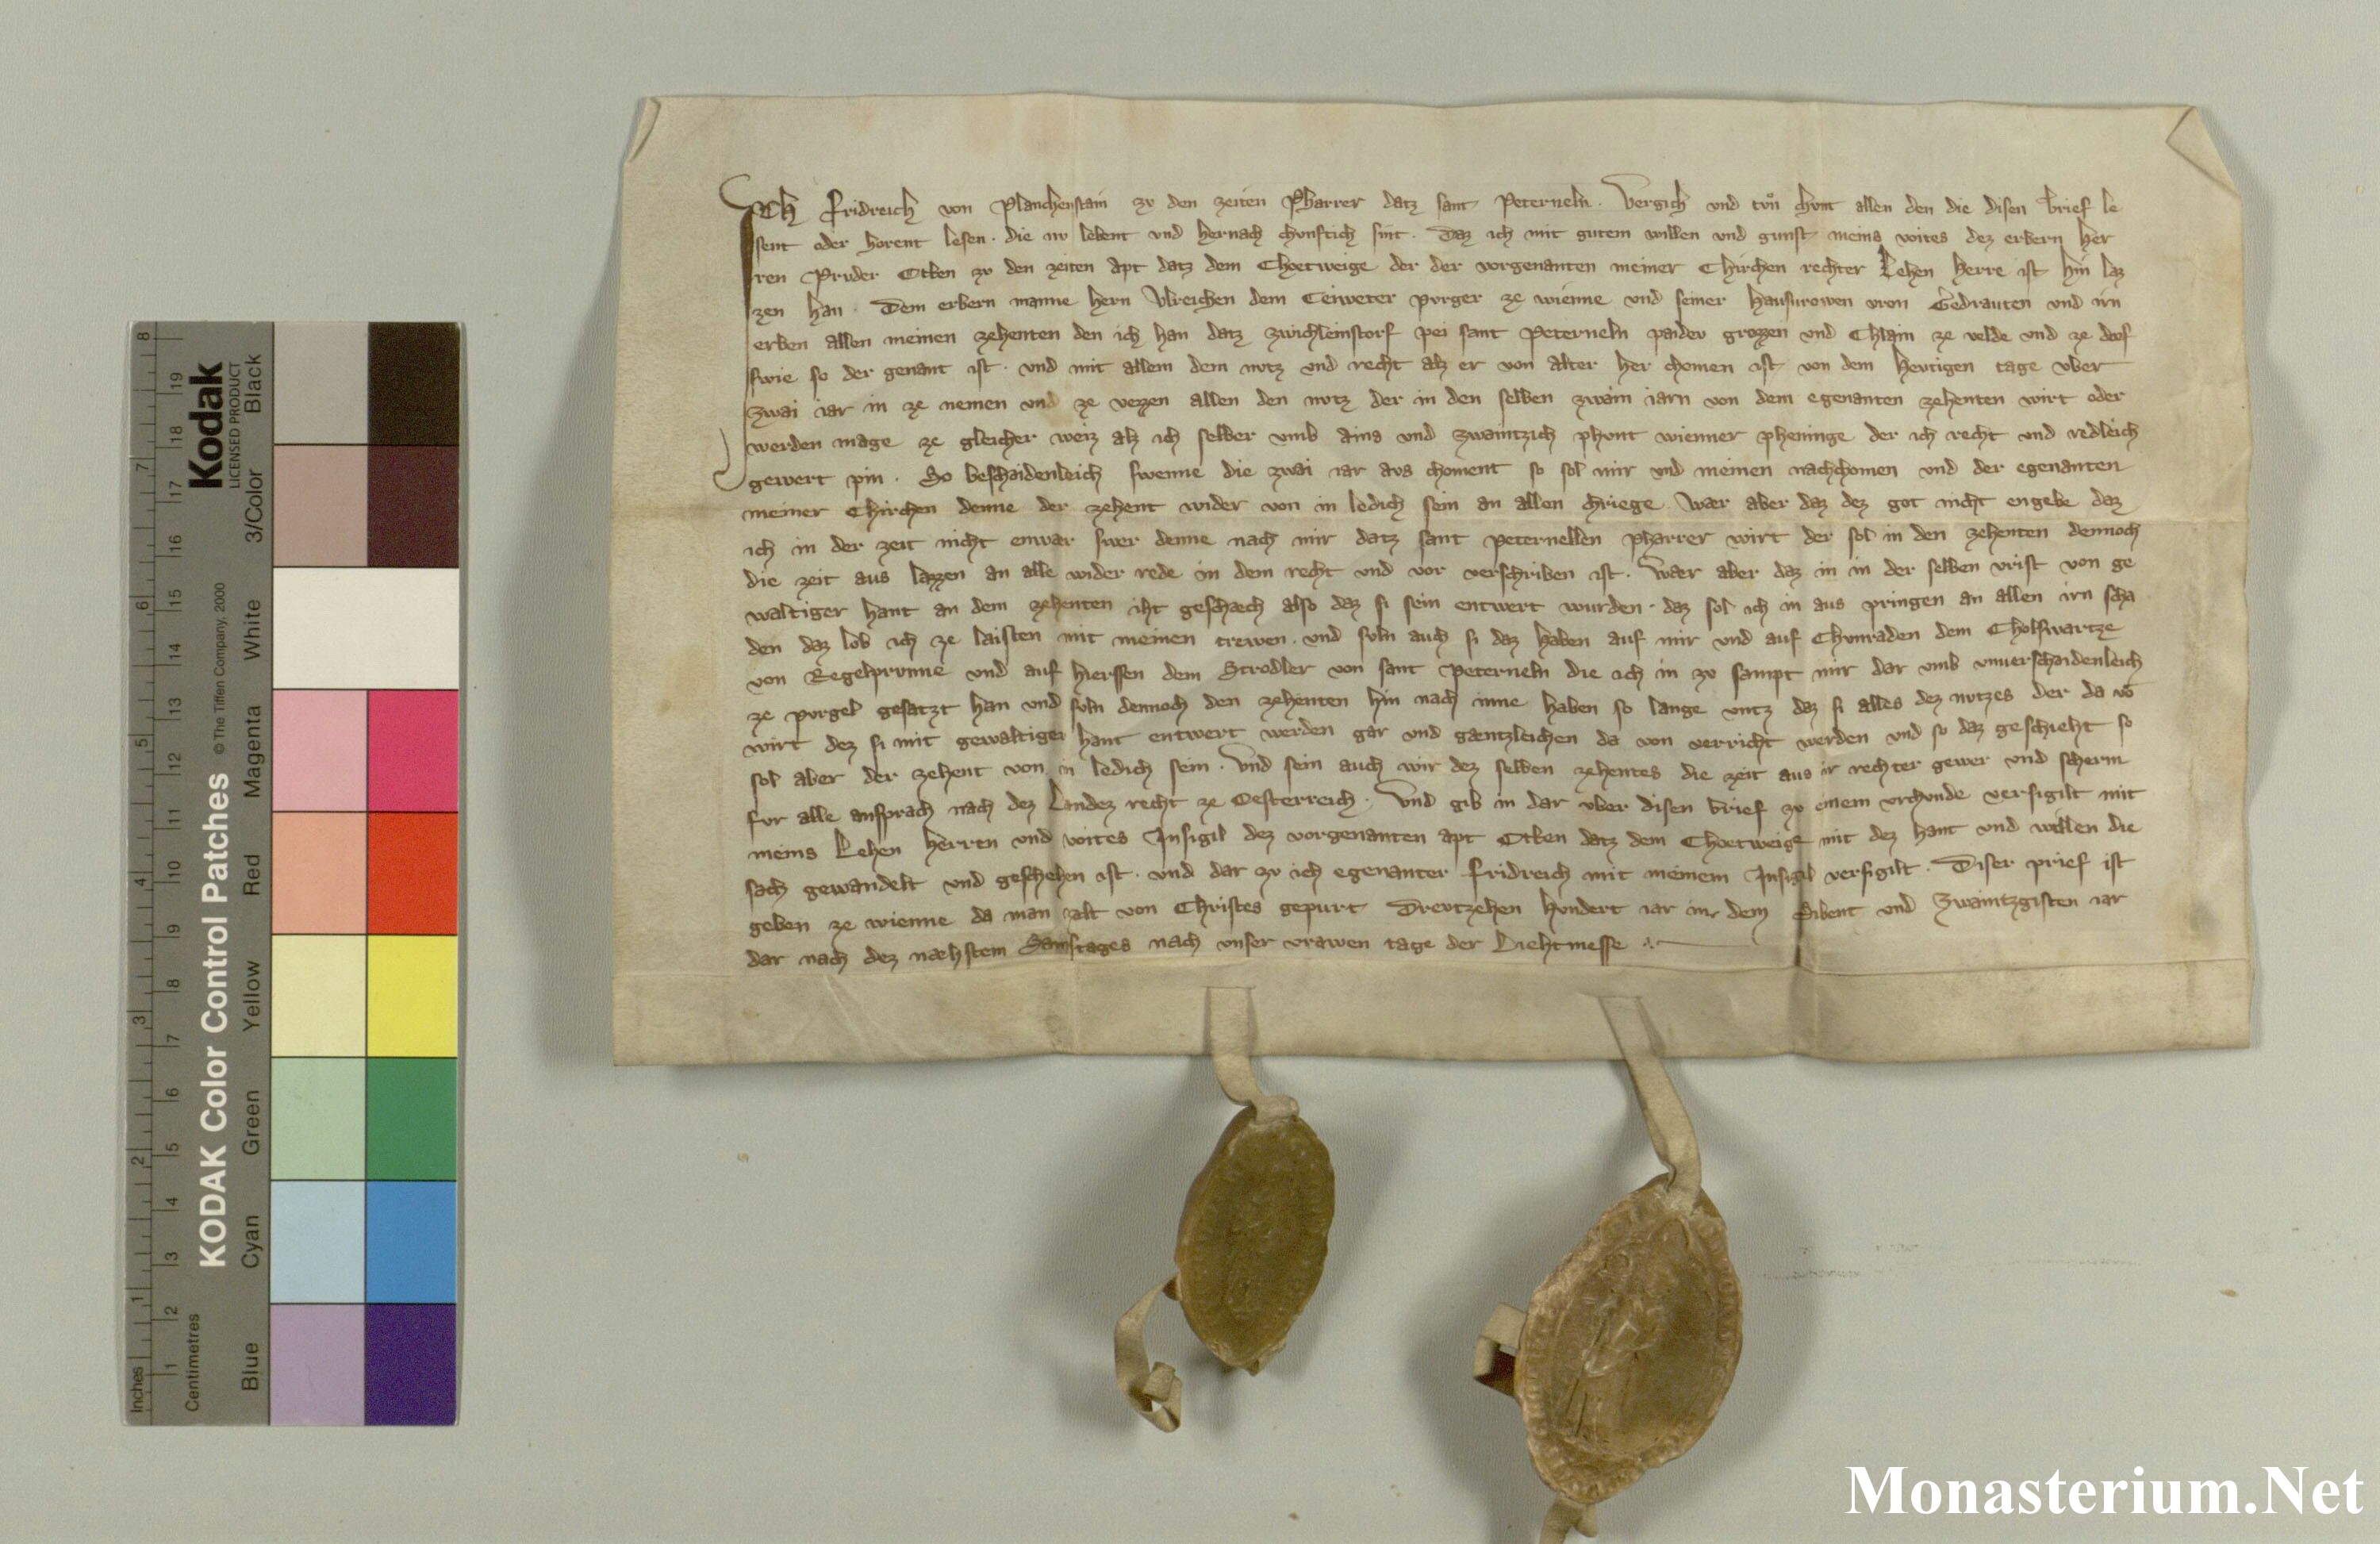 Ich Fridreich von Planchenstain zv den zeiten Pharrer datz sant Peterneln. Vergich vnd tvͦn chvnt allen den die disen brief le
sent oder horent lesen. die nv lebent vnd hernach chvnftich sint. Daz ich mit gutem willen vnd gunst meins voites dez erbern her
ren Pruder Otken zv den zeiten apt datz dem Chotweige der der vorgenanten meiner Chirchen rechter Lehen herre ist hin laz
zen han. Dem erbern manne hern Vlreichen dem pvrger ze wienne vnd seiner hausvrowen vron Gedrauten vnd irn
erben allen meinen zehenten den ich han datz zwichleinstorf pei sant Peterneln paidev grozzen vnd Chlain ze velde vnd ze dorf
swie so der genant ist. vnd mit allem dem nvtz vnd recht alz er von alter her chomen ist von dem hevtigen tage vber
zwai iar in ze nemen vnd ze vezzen allen den nvtz der in den selben zwain iarn von dem egenanten zehenten wirt oder
werden mage ze gleicher weiz alz ich selber vmb ains vnd zwaintzich phvnt wienner pheninge der ich recht vnd redleich
gewert pin. So beschaidenleich swenne die zwai iar avs choment so sol mir vnd meinen nachchomen vnd der egenanten
meiner Chirchen denne der zehent wider von in ledich sein an allen chriege. War aber daz dez got nicht engebe daz
ich in der zeit nicht enwar swer denne nach mir datz sant peternellen pharrer wirt der sol in den zehenten dennoch
die zeit aus lazzen an alle wider rede in dem recht vnd vor verschriben ist. Waer aber daz in in der selben vrist von ge
waltiger hant an dem zehenten iht geschaech also daz si sein entwert wurden. daz sol ich in aus pringen an allen irn scha
den daz lob ich ze laisten mit meinen trewen. vnd svln auch si daz haben auf mir vnd auf Chvnraden dem Cholswartze
von Regelprvnne vnd auf hierssen dem Strodler von sant Peterneln die ich in zv sampt mir dar vmb vnverschaidenleich
ze pvrgel gesatzt han vnd svln dennoch den zehenten hin nach inne haben so lange vntz daz si alles dez nvtzes der da vō
wirt dez si mit gewaltiger hant entwert werden gar vnd gaentzleichen da von verricht werden vnd so daz geschieht so
sol aber der zehent von in ledich sein. Vnd sein auch wir dez selben zehentes die zeit aus ir rechter gewer vnd scherm
fvr alle ansprach nach dez Landez recht ze Oesterreich. Vnd gib in dar vber disen brief zv einem vrchvnde versigilt mit
meins Lehen herren vnd voites Insigil dez vorgenanten apt Otken datz dem Chotweige mit dez hant vnd willen die
sach gewandelt vnd geschehen ist. vnd dar zv ich egenanter Fridreich mit meinem Insigil versigilt. Diser prief ist
geben ze wienne da man zalt von Christes gepurt Drevtzehen hvndert iar in dem Sibent vnd Zwaintzgisten iar
dar nach dez naehstem Samstages nach vnser vrawen tage der Liehtmesse
Kodak
LICENSED PRODUCT
KODAK Color Control Patches
© The Tiffen Company, 2000
Black
3/Color
White
Magenta
Red
Yellow
Green
Cyan
Blue
Inches
Centimetres
8 7 6 5 4 3 2 1
19 18 17 16 15 14 13 12 11 10 9 8 7 6 5 4 3 2 1
Monasterium.Net